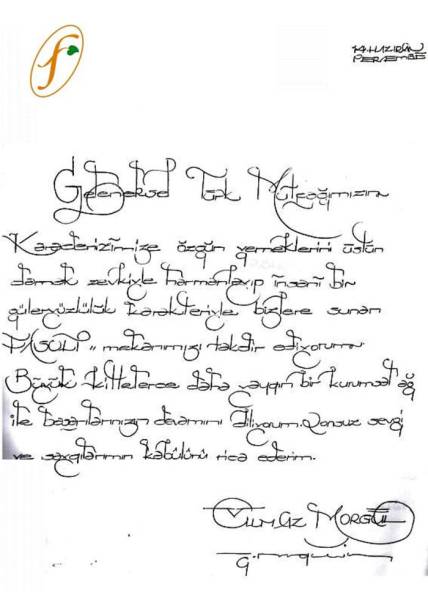 f
14 HAZİRAN
PERŞEMBE
Geleneksel Türk Mutfağımızın
Karadenizimize özgün yemeklerini üstün
damak zevkiyle harmanlayıp insani bir
güleryüzlülük karakteriyle bizlere sunan
"FASULİ" mekanımızı takdir ediyorum
Büyük kitlelerce daha yaygın bir kurumsal ağ
ile başarılarınızın devamını diliyorum. Sonsuz sevgi
ve saygılarımın kabülünü rica ederim.
YILMAZ MORGÜL